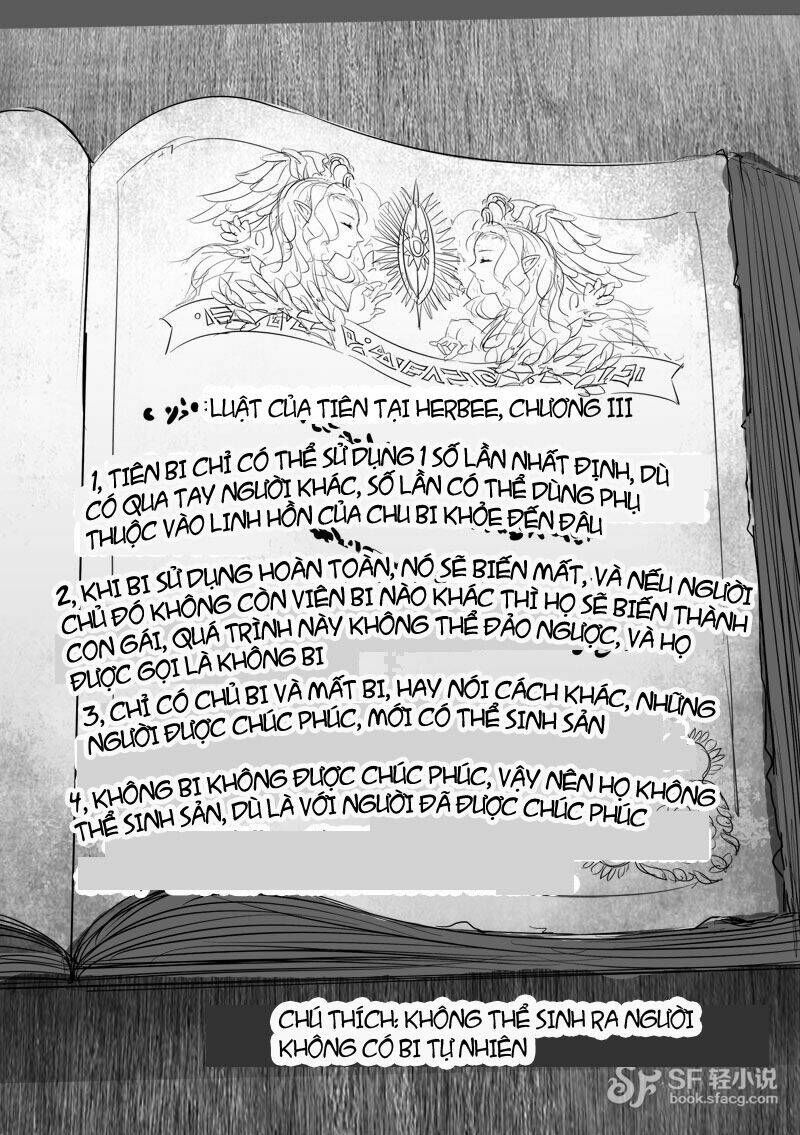 :LUẬT CỦA TIÊN TẠI HERBEE, CHƯƠNG III
1, TIÊN BI CHỈ CÓ THỂ SỬ DỤNG 1 SỐ LẦN NHẤT ĐỊNH, DÙ
CÓ QUA TAY NGƯỜI KHÁC, SỐ LẦN CÓ THỂ DÙNG PHỤ
THUỘC VÀO LINH HỒN CỦA CHU BI KHỎE ĐẾN ĐÂU
2, KHI BI SỬ DỤNG HOÀN TOÀN, NÓ SẼ BIẾN MẤT, VÀ NẾU NGƯỜI
CHỦ ĐÓ KHÔNG CÒN VIÊN BI NÀO KHÁC THÌ HỌ SẼ BIẾN THÀNH
CON GÁI, QUÁ TRÌNH NÀY KHÔNG THỂ ĐẢO NGƯỢC, VÀ HỌ
ĐƯỢC GỌI LÀ KHÔNG BI
3, CHỈ CÓ CHỦ BI VÀ MẤT BI, HAY NÓI CÁCH KHÁC, NHỮNG
NGƯỜI ĐƯỢC CHÚC PHÚC, MỚI CÓ THỂ SINH SẢN
4, KHÔNG BI KHÔNG ĐƯỢC CHÚC PHÚC, VẬY NÊN HỌ KHÔNG
THỂ SINH SẢN, DÙ LÀ VỚI NGƯỜI ĐÃ ĐƯỢC CHÚC PHÚC
CHÚ THÍCH: KHÔNG THỂ SINH RA NGƯỜI
KHÔNG CÓ BI TỰ NHIÊN
SF 轻小说
book.sfacg.com